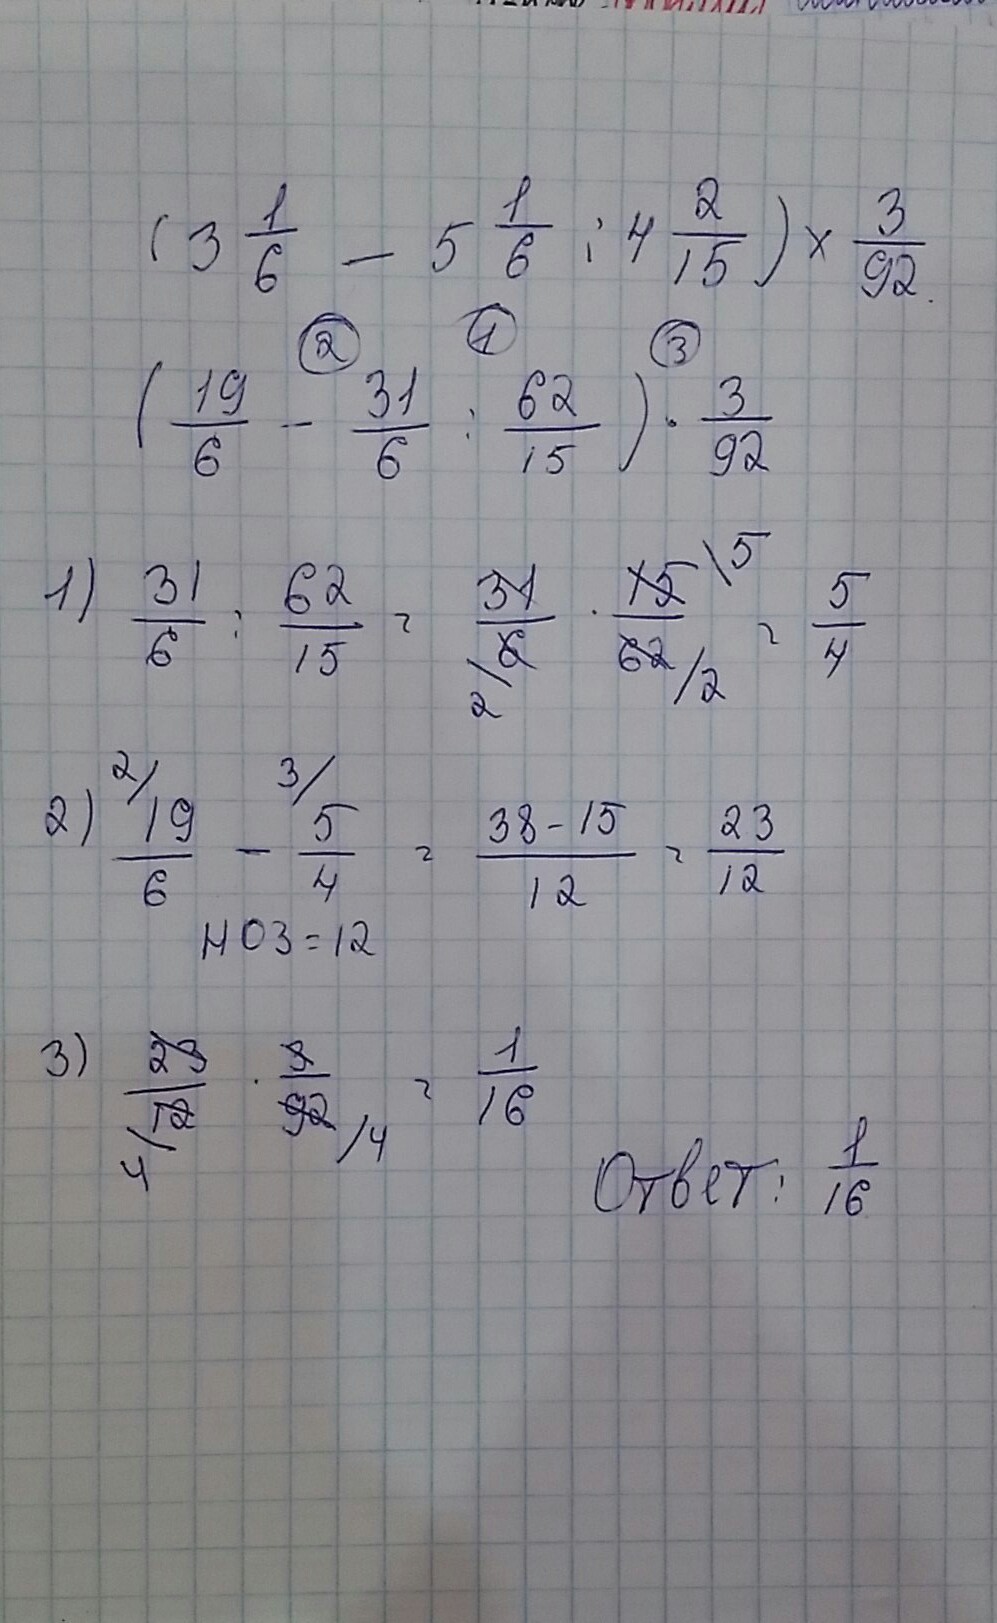 (3 1/6 - 5 1/6 : 4 2/15) × 3/92.
② ① ③
(19/6 - 31/6 : 62/15) · 3/92
1) 31/6 : 62/15 = 31/6 \2 · 15/62 \5 /2 = 5/4
2) 2/ 19/6 - 3/ 5/4 = 38-15/12 = 23/12
НОЗ = 12
3) 23/12 4/ · 3/92 /4 = 1/16
Ответ: 1/16